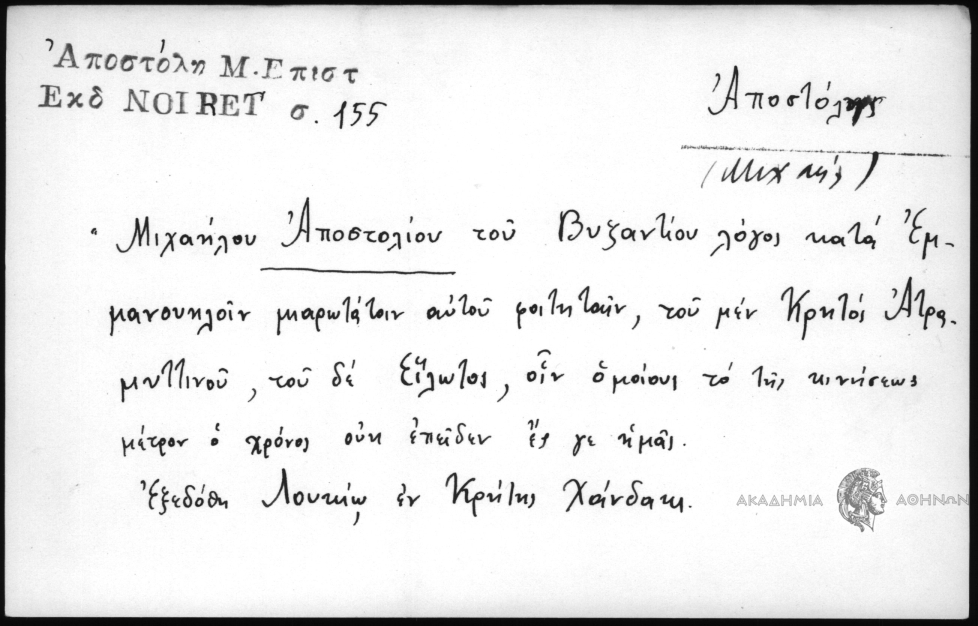 Ἀποστόλη Μ. Επιστ
Εκδ NOIRET σ. 155
Ἀποστόλης
(Μιχαήλ)
" Μιχαήλου Ἀποστολίου τοῦ Βυζαντίου λόγος κατά Ἐμ-
μανουηλοῖν μιαρωτάτοιν αὐτοῦ φοιτηταῖν, τοῦ μέν Κρητός Ἀτρα-
μυττινοῦ, τοῦ δέ Εἵλωτος, οἷν ὁμοίους τό τῆς κινήσεως
μέτρον ὁ χρόνος οὐκ ἐπεῖδεν ἔς γε ἡμᾶς.
Ἐξεδόθη Λουκίῳ ἐν Κρήτης Χάνδακι.
ΑΚΑΔΗΜΙΑ ΑΘΗΝΩΝ